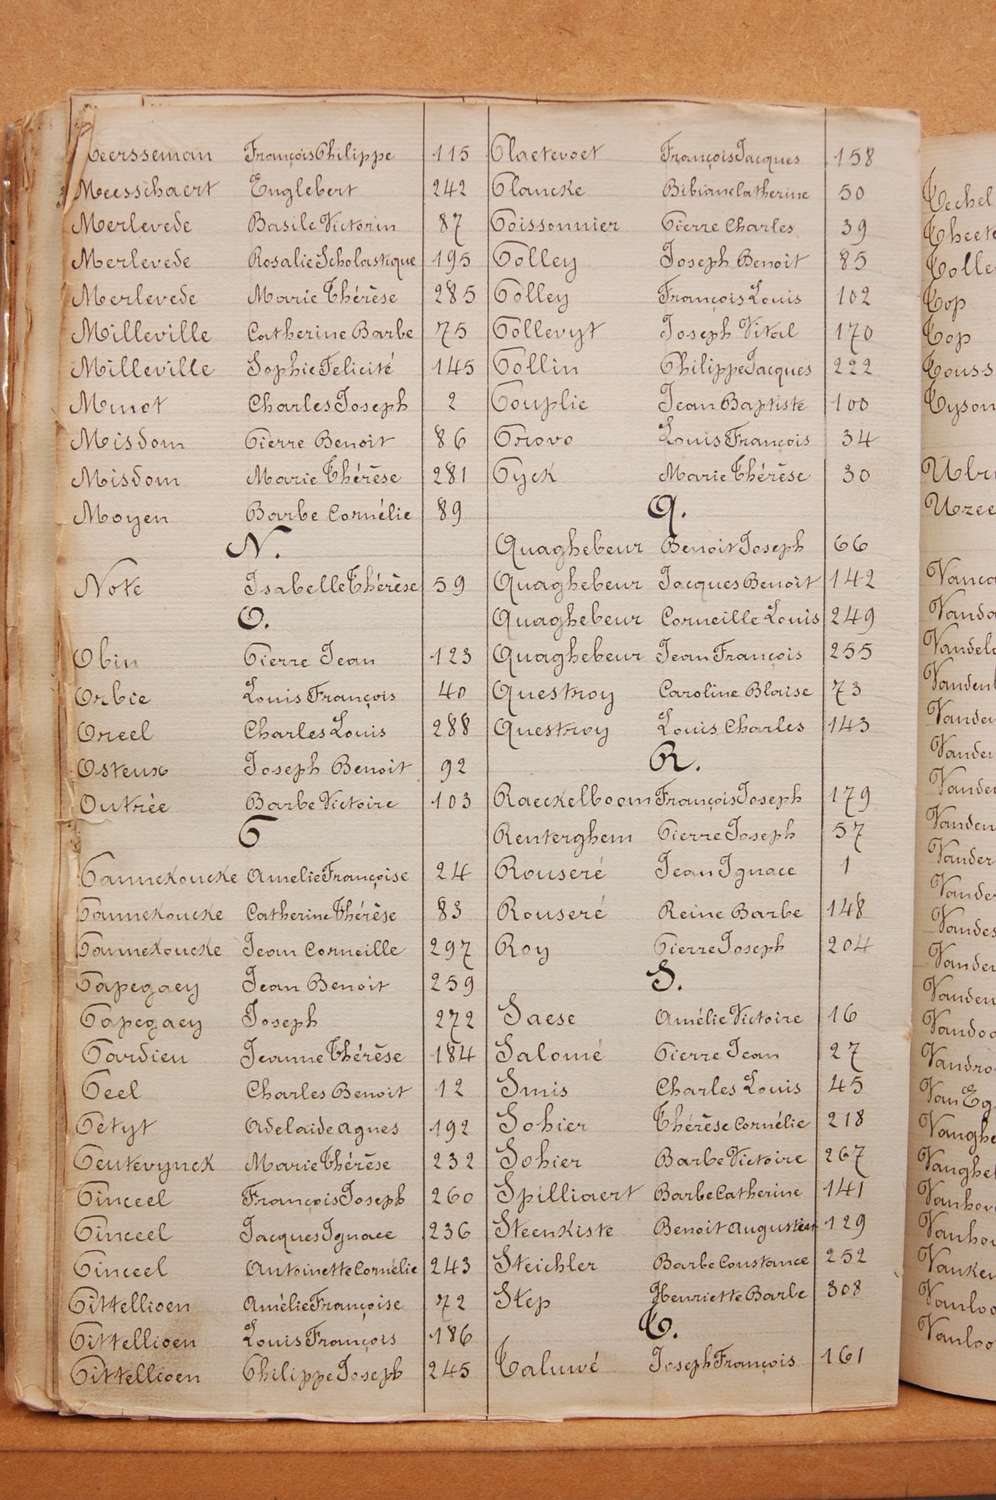 Meersseman François Philippe 115
Meesschaert Englebert 242
Merlevede Basile Victorin 87
Merlevede Rosalie Scholastique 195
Merlevede Marie Thérèse 285
Milleville Catherine Barbe 75
Milleville Sophie Felicité 145
Minot Charles Joseph 2
Misdom Pierre Benoit 86
Misdom Marie Thérèse 281
Moyen Barbe Cornélie 89
N.
Note Isabelle Thérèse 59
O.
Obin Pierre Jean 123
Orbie Louis François 40
Oreel Charles Louis 288
Osteux Joseph Benoit 92
Outrée Barbe Victoire 103
P
Pannekoucke Amelie Françoise 24
Pannekoucke Catherine Thérèse 83
Pannekoucke Jean Corneille 297
Papegaey Jean Benoit 259
Papegaey Joseph 272
Pardieu Jeanne Thérèse 184
Peel Charles Benoit 12
Petyt Adelaide Agnes 192
Peutevynck Marie Thérèse 232
Pinceel François Joseph 260
Pinceel Jacques Ignace 236
Pinceel Antoinette Cornélie 243
Pittellioen Amélie Françoise 72
Pittellioen Louis François 186
Pittellioen Philippe Joseph 245
Plaetevoet François Jacques 158
Plancke Bibiane Catherine 50
Poissonnier Pierre Charles 39
Polley Joseph Benoit 85
Polley François Louis 102
Pollevyt Joseph Vital 170
Pollin Philippe Jacques 222
Pouplie Jean Baptiste 100
Provo Louis François 34
Pyck Marie Thérèse 30
Q.
Quaghebeur Benoit Joseph 66
Quaghebeur Jacques Benoit 142
Quaghebeur Corneille Louis 249
Quaghebeur Jean François 255
Questroy Caroline Blaise 73
Questroy Louis Charles 143
R.
Raeckelboom François Joseph 179
Renterghem Pierre Joseph 57
Rouseré Jean Ignace 1
Rouseré Reine Barbe 148
Roy Pierre Joseph 204
S.
Saese Amélie Victoire 16
Salomé Pierre Jean 27
Smis Charles Louis 45
Sohier Thérèse Cornélie 218
Sohier Barbe Victoire 267
Spilliaert Barbe Catherine 141
Steenkiste Benoit Augustin 129
Steichler Barbe Constance 252
Step Henriette Barbe 308
T.
Taluwé Joseph François 161
Top
Top